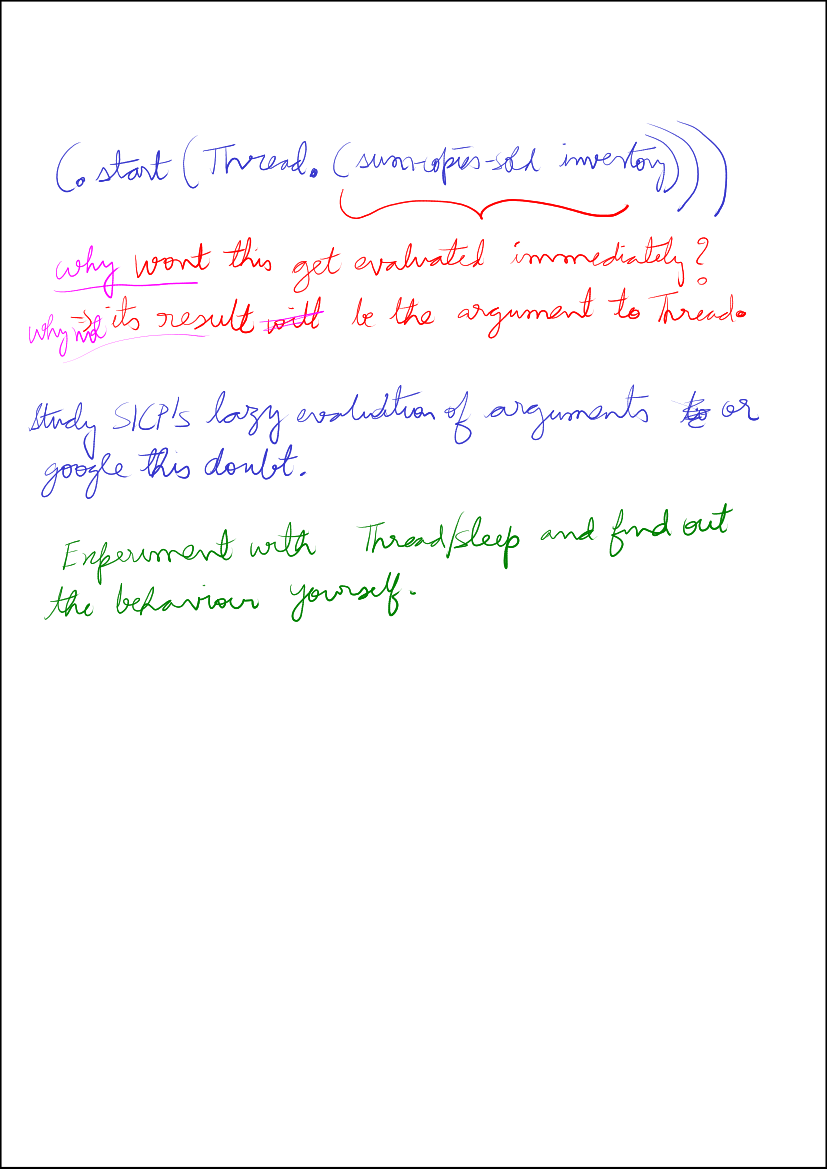 (. start (Thread. (sum-copies-sold inventory)))
why wont this get evaluated immediately?
why not => its result will be the argument to Thread.
Study SICP's lazy evaluation of arguments to or
google this doubt.
Experiment with Thread/sleep and find out
the behaviour yourself.